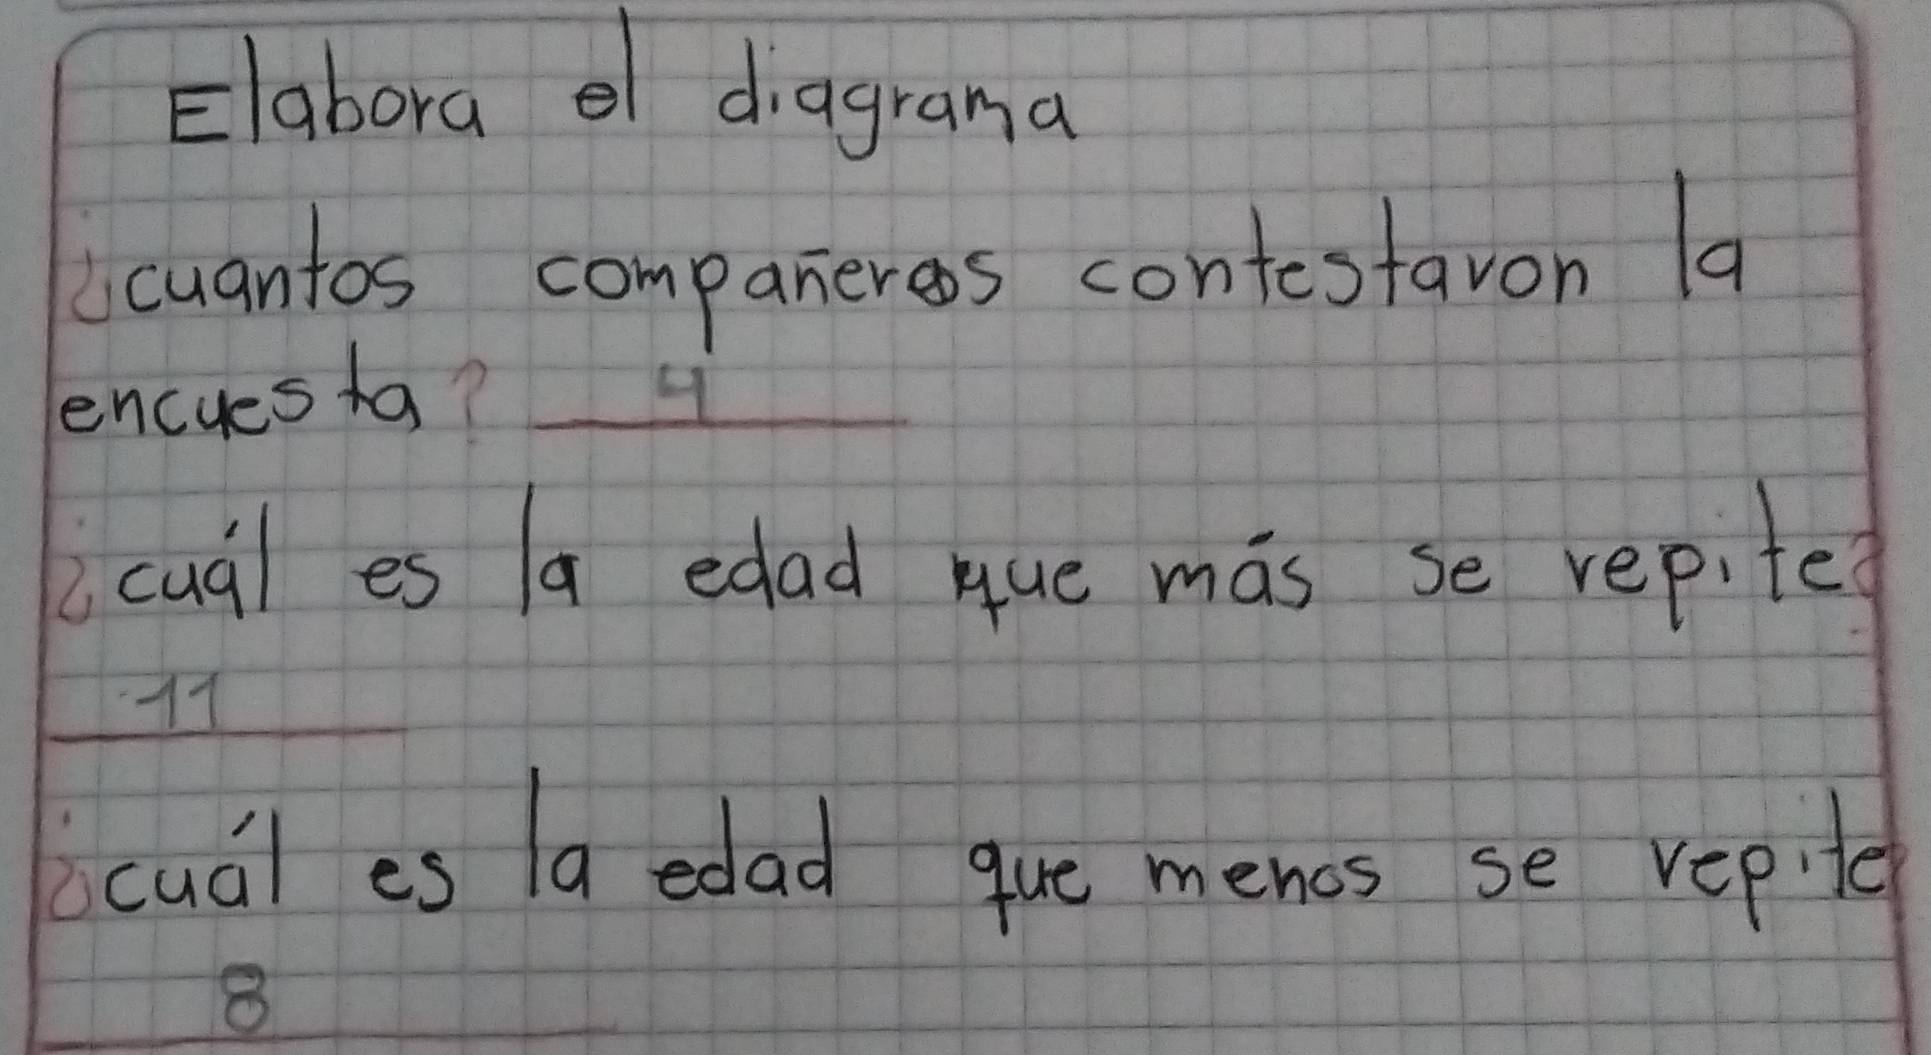 Elabora el diagrama
¿cuantos compañeros contestaron la
encuesta? 4
¿cuál es la edad que más se repite?
11
¿cuál es la edad que menos se repite?
8